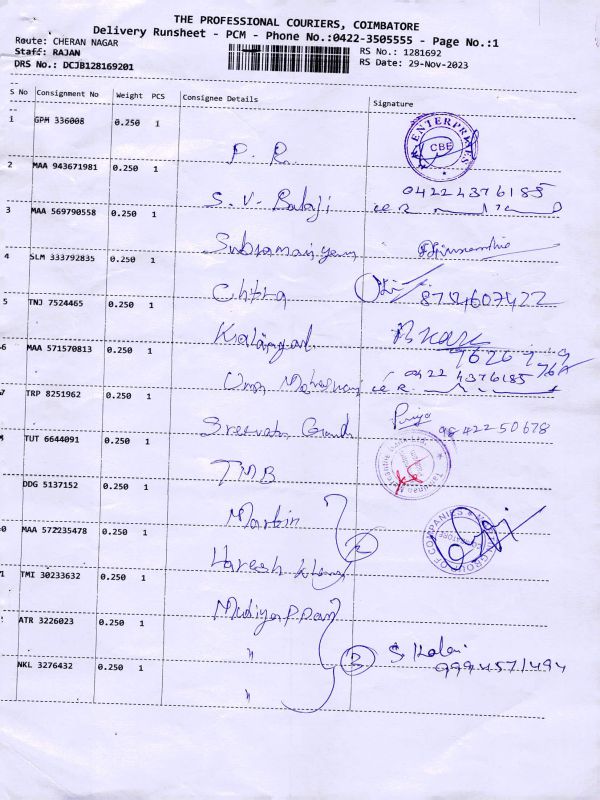 THE PROFESSIONAL COURIERS, COIMBATORE
Delivery Runsheet - PCM - Phone No.:0422-3505555 - Page No.:1
Route: CHERAN NAGAR
RS No.: 1281692
Staff: RAJAN
RS Date: 29-Nov-2023
DRS No.: DCJB128169201
S No Consignment No Weight PCS Consignee Details Signature
1 GPM 336008 0.250 1 P. R. ENTERPRISES CBE
2 MAA 943671981 0.250 1 S. V. Balaji 0422 4376185
3 MAA 569790558 0.250 1 Subramaniyam
4 SLM 333792835 0.250 1 Chitra
5 TNJ 7524465 0.250 1
6 MAA 571570813 0.250 1 Uma 0422 4376185
7 TRP 8251962 0.250 1 Priya 98422 50678
TUT 6644091 0.250 1 TMB
DDG 5137152 0.250 1 Martin
0 MAA 572235478 0.250 1 Hareesh 2 GROUP OF COMPANIES
1 TMI 30233632 0.250 1 Mudiyappan
ATR 3226023 0.250 1 " 3 S. Kalai
NKL 3276432 0.250 1 "